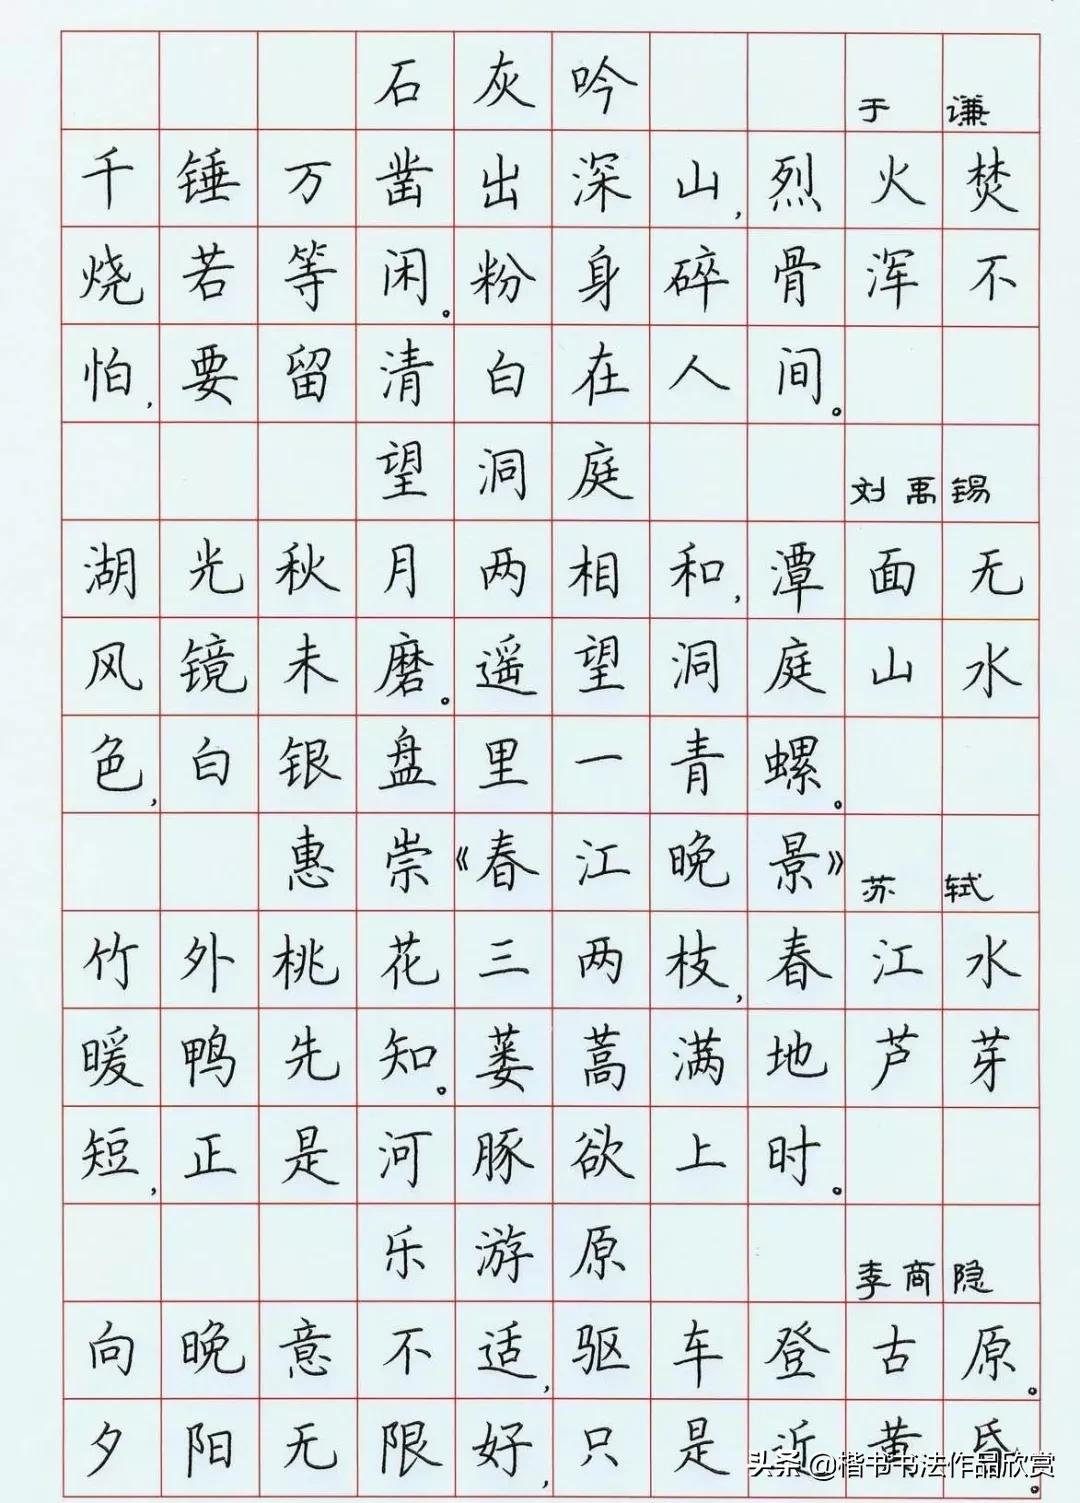 石灰吟 于谦
千锤万凿出深山,烈火焚
烧若等闲。粉身碎骨浑不
怕,要留清白在人间。
望洞庭 刘禹锡
湖光秋月两相和,潭面无
风镜未磨。遥望洞庭山水
色,白银盘里一青螺。
惠崇《春江晚景》 苏轼
竹外桃花三两枝,春江水
暖鸭先知。蒌蒿满地芦芽
短,正是河豚欲上时。
乐游原 李商隐
向晚意不适,驱车登古原。
夕阳无限好,只是近黄昏。
头条 @楷书书法作品欣赏